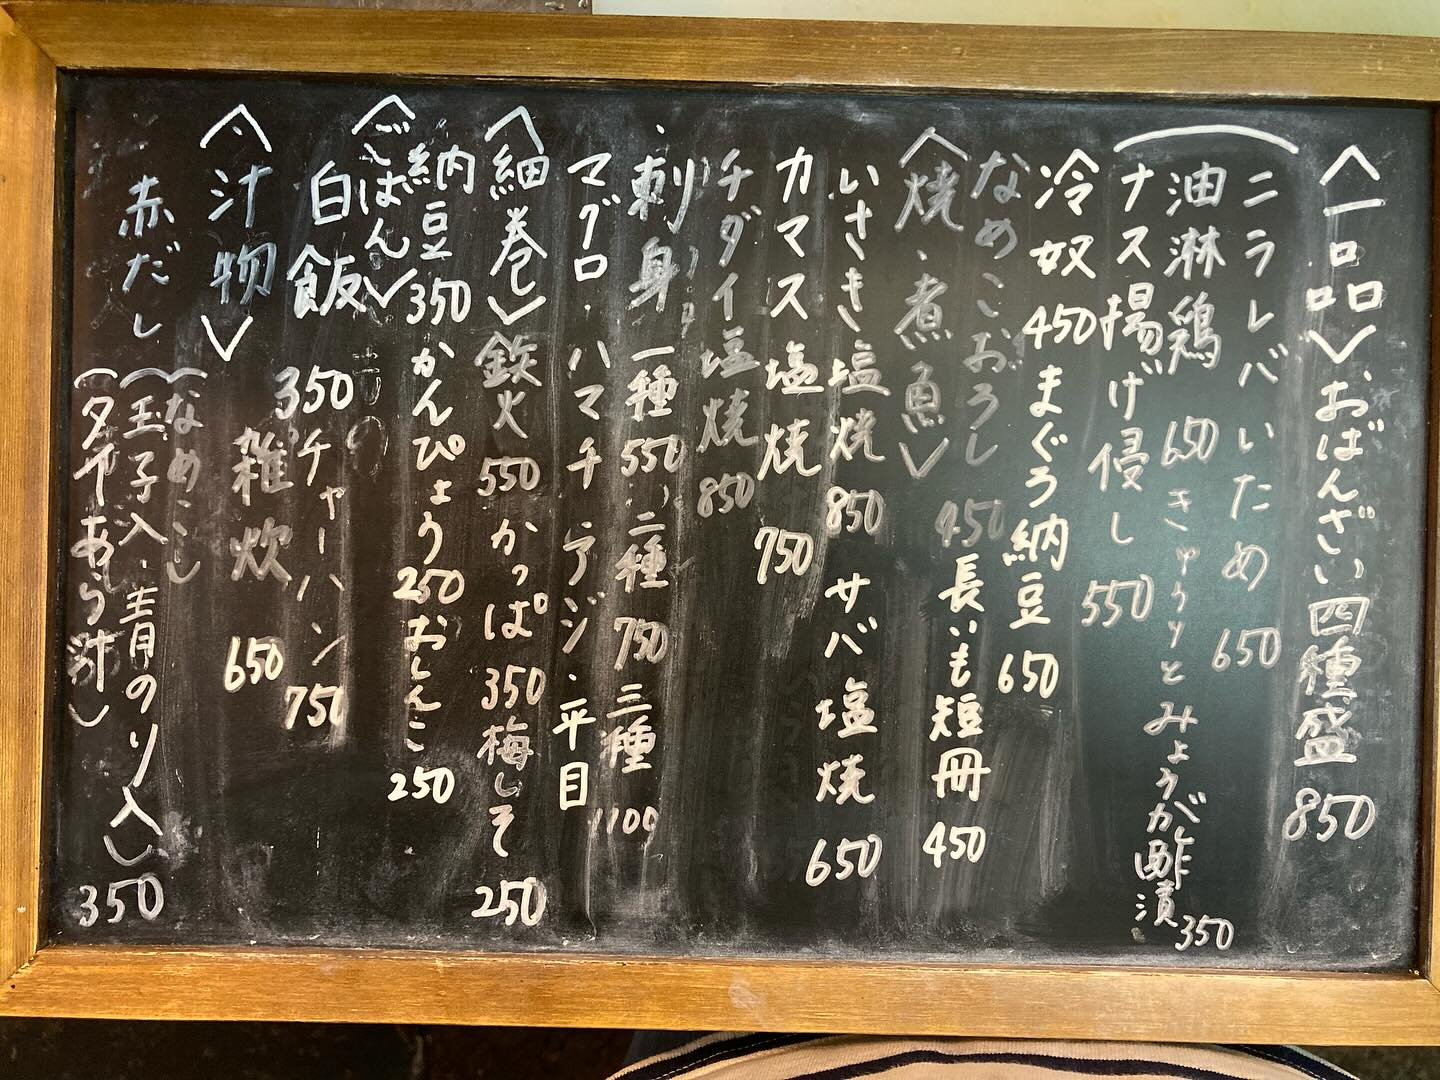 〈一品〉おばんざい四種盛 850
ニラレバいため 650
油淋鶏 650 きゅうりとみょうが酢漬 350
ナス揚げ浸し 550
冷奴 450 まぐろ納豆 650
なめこおろし 450 長いも短冊 450
〈焼、煮魚〉
いさき塩焼 850 サバ塩焼 650
カマス塩焼 750
チダイ塩焼 850
刺身 一種 550 二種 750 三種 1100
マグロ・ハマチ・アジ・平目
〈細巻〉鉄火 550 かっぱ 350 梅しそ 250
納豆 350 かんぴょう 250 おしんこ 250
〈ごはん〉
白飯 350 チャーハン 750
雑炊 650
〈汁物〉
赤だし(なめこ・しじ
(玉子入・青のり入) 350
あら汁)